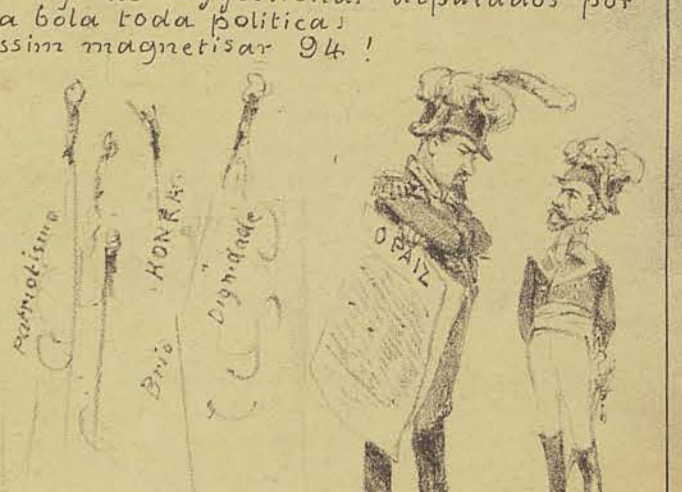 a bola toda politica;
ssim magnetisar 94!
Patriotismo
Brio
HONRA
Dignidade
O PAIZ